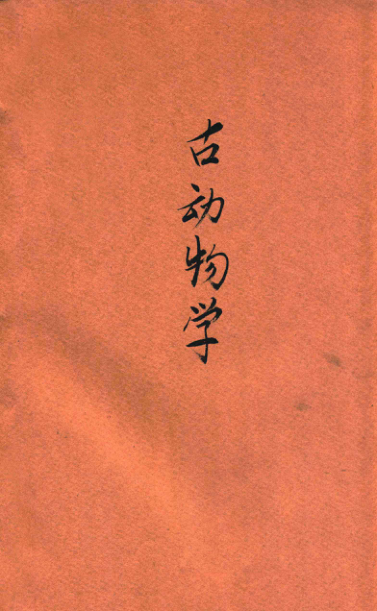 古动物学